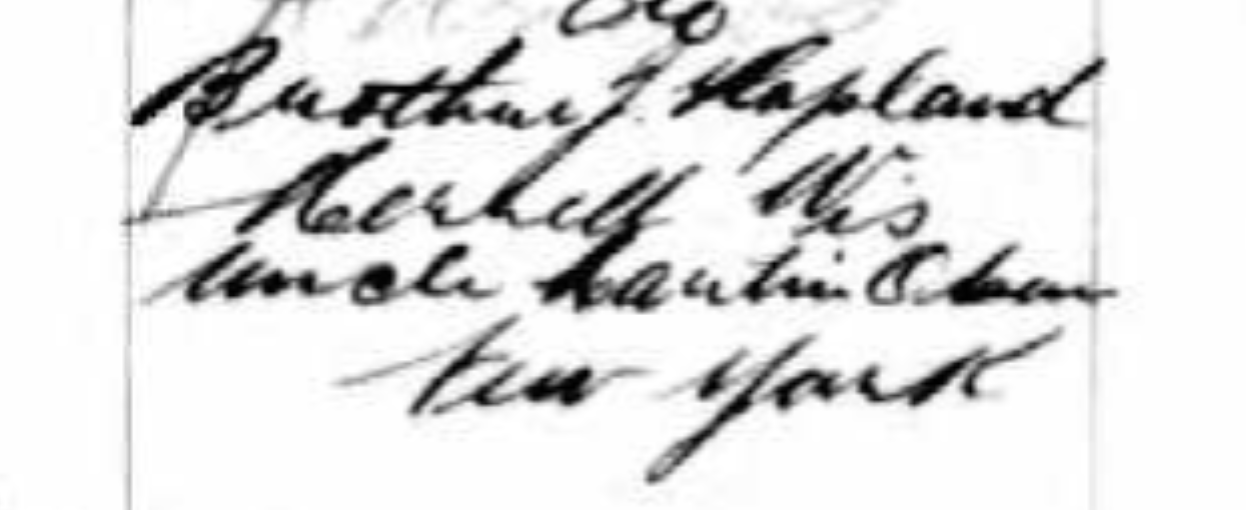 Brother J. Hapland
Wis
Uncle Martin Olson
New York